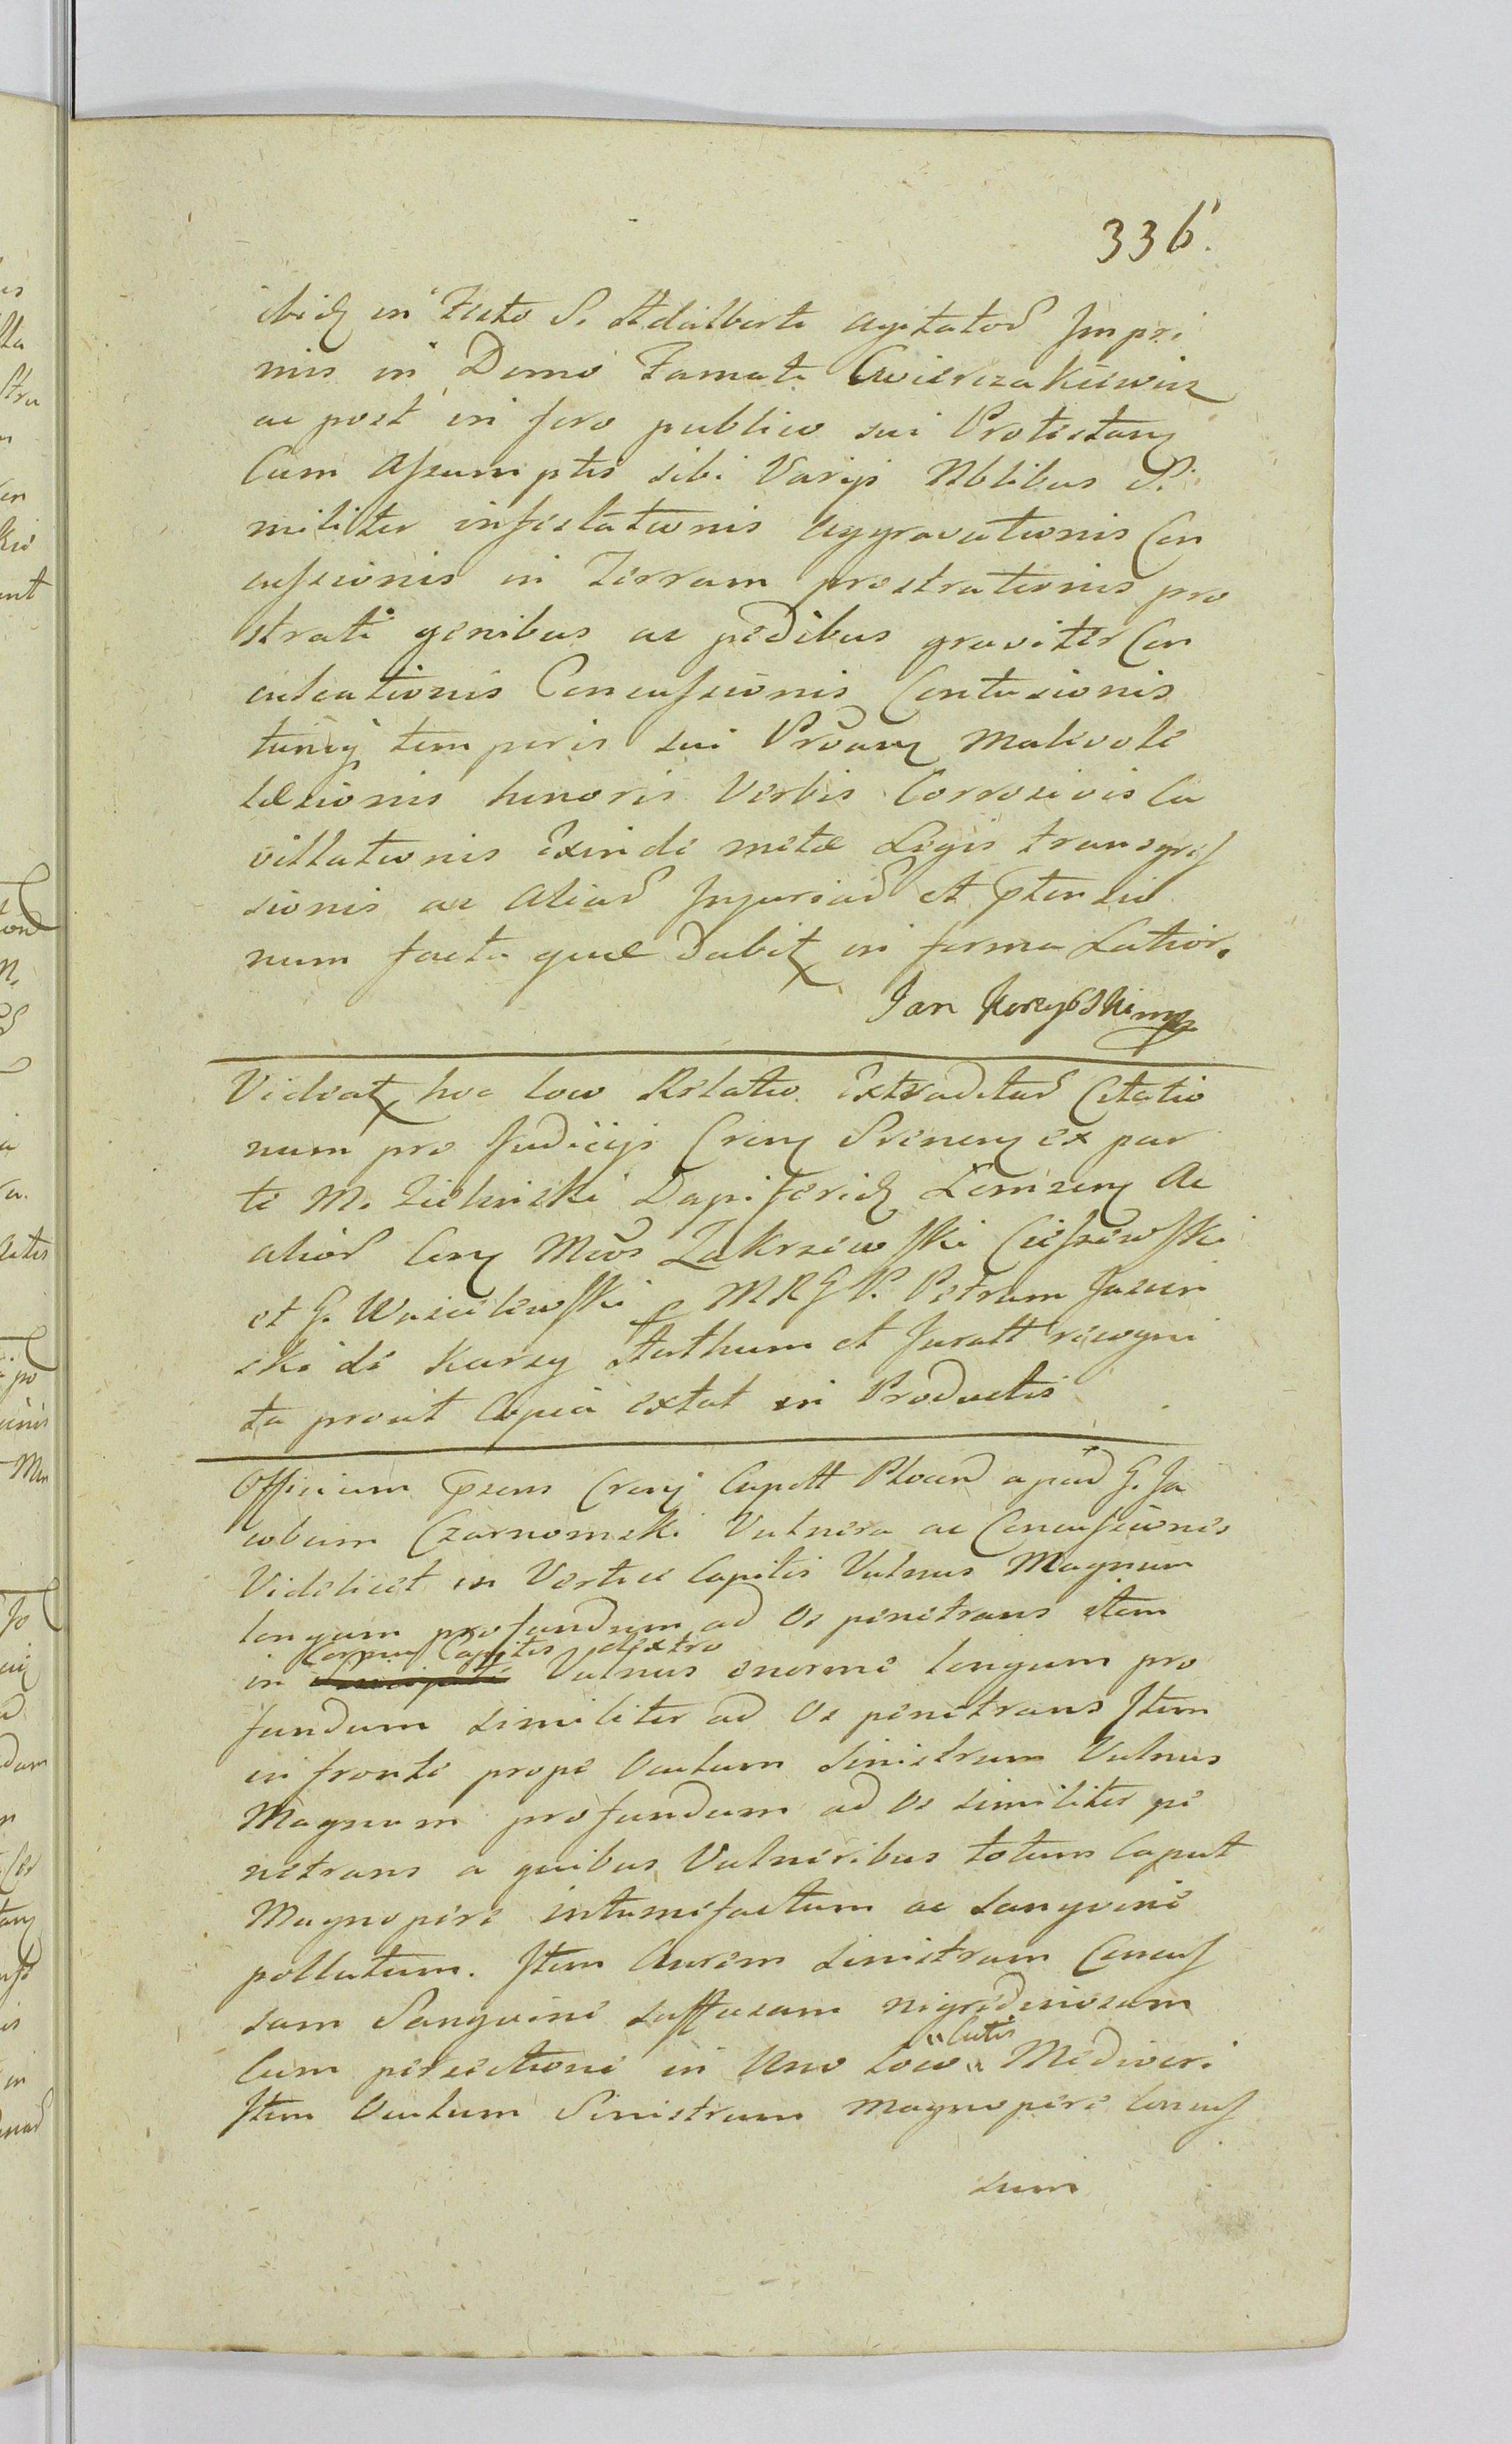 336.
ibiq in Festo S. Adalberti agitator Impri
mis in Domo Famati Cwierczakiewicz
ac post in foro publico sui Protestan
Cum Assumptis sibi Varijs Nblibus Si
militer infestationis aggravationis Con
cussionis in Terram prostrationis pro
strati genibus ac pedibus graviter Con
culcationis Concussionis Contusionis
tuncq temporis sui Proan malevole
læsionis honoris Verbis Corrosivis Ca
villationis Exinde metæ Legis transgres
sionis ac aliar Injuriar et ptensio
num facta quæ Dabit in forma Latior.
Jan
Videat hoc loco Relatio Extraditar Citatio
num pro Judicijs Cren Srenen ex par
te M. Zielinski Dapiferid Lomzen Ac
alior Con Mcos Zakrzewski Cieszewski
et G. Wasilewski p MRGV. Petrum Jasin
ski de Karsy Authum et Juratt recogni
ta prout Copia extat in Productis
Officium psens Cren Capett Plocen apud G. Ja
cobum Czarnomski Vulnera ac Concussiones
Videlicet in Vertice Capitis Vulnus Magnum
longum profundum ad Os penetrans item
Cornu Capitis dextro
in Vulnus enorme longum pro
fundum similiter ad Os penetrans Item
in fronte prope Oculum Sinistrum Vulnus
Magnum profundum ad Os similiter pe
netrans a quibus Vulneribus totum Caput
Magnopere intumefactum ac Sangvine
pollutum. Item Aurem sinistram Concus
sam Sangvine suffusam nigredinosam
Cutis
Cum persectione in Uno loco Mediocri
Item Oculum Sinistrum magnopere Concus
sum